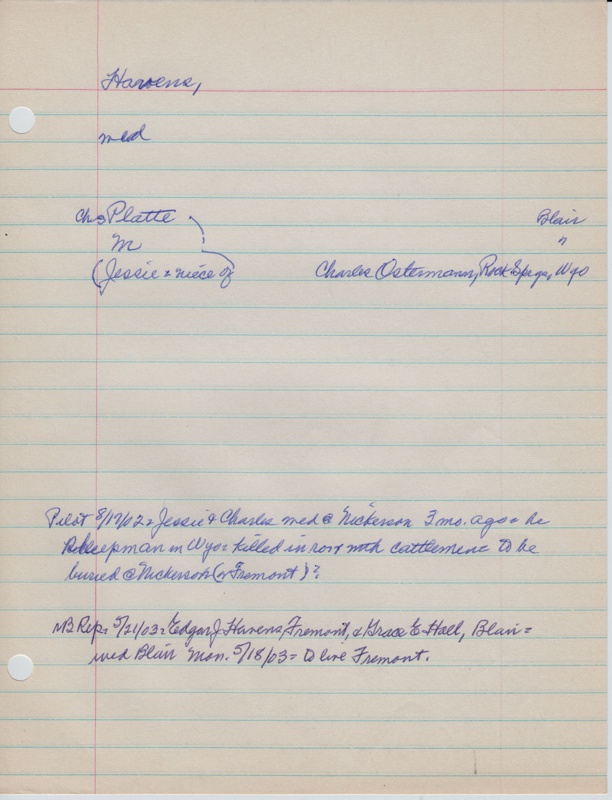 Havens,
med
ch= Platte
Blair
m
"
(Jessie = niece of
Charles Ostermann, Rock Spgs, Wyo
Pilot 8/17/02 = Jessie & Charles med @ Nickerson 3 mo. ago = he
sheepman in Wyo = killed in row with cattlemen = to be
buried @ Nickerson (or Fremont)?
NB Rep. 5/21/03 = Edgar J. Havens, Fremont, & Grace E. Hall, Blair =
wed Blair Mon. 5/18/03 = to live Fremont.